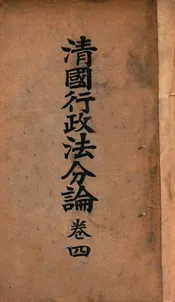 清國行政法分論 卷四